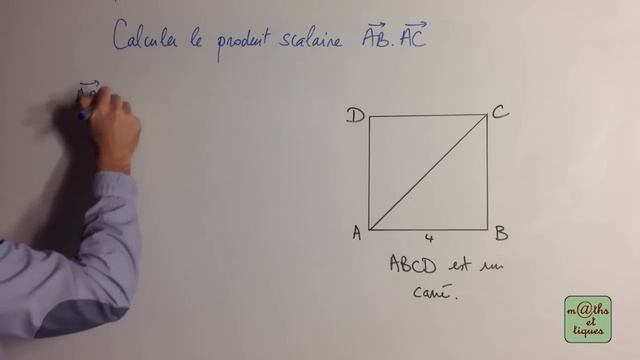 Calculer le produit scalaire AB⃗.AC⃗
D C
A 4 B
ABCD est un
carré.
m@ths
et
tiques